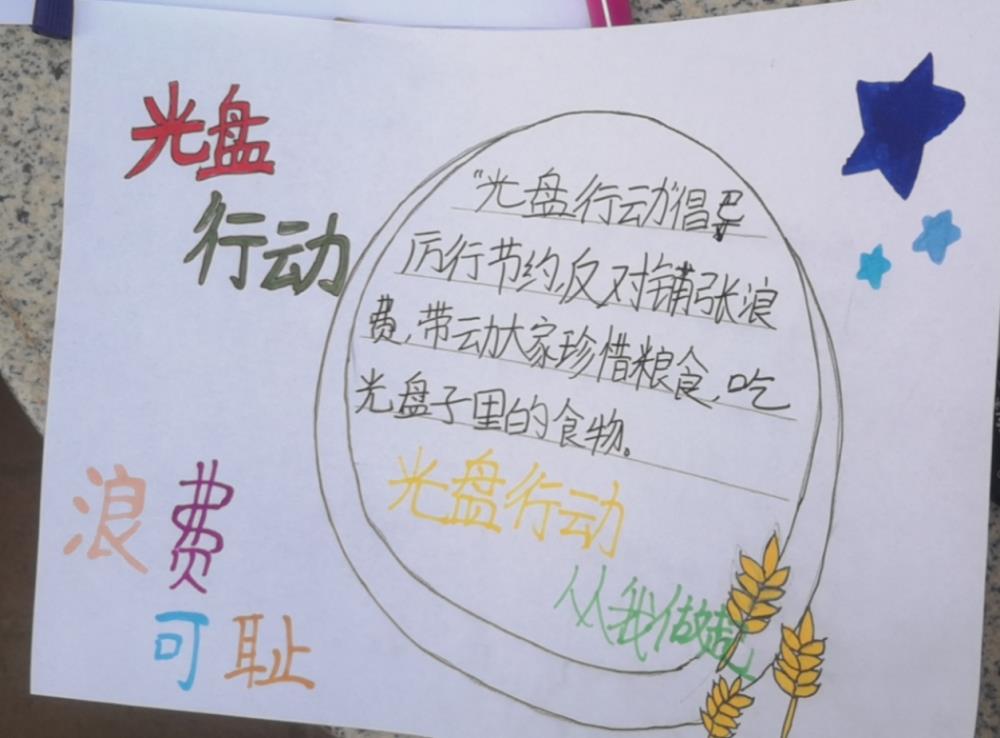 光盘
行动
"光盘行动"倡导
厉行节约,反对铺张浪
费,带动大家珍惜粮食,吃
光盘子里的食物。
光盘行动
从我做起
浪费
可耻